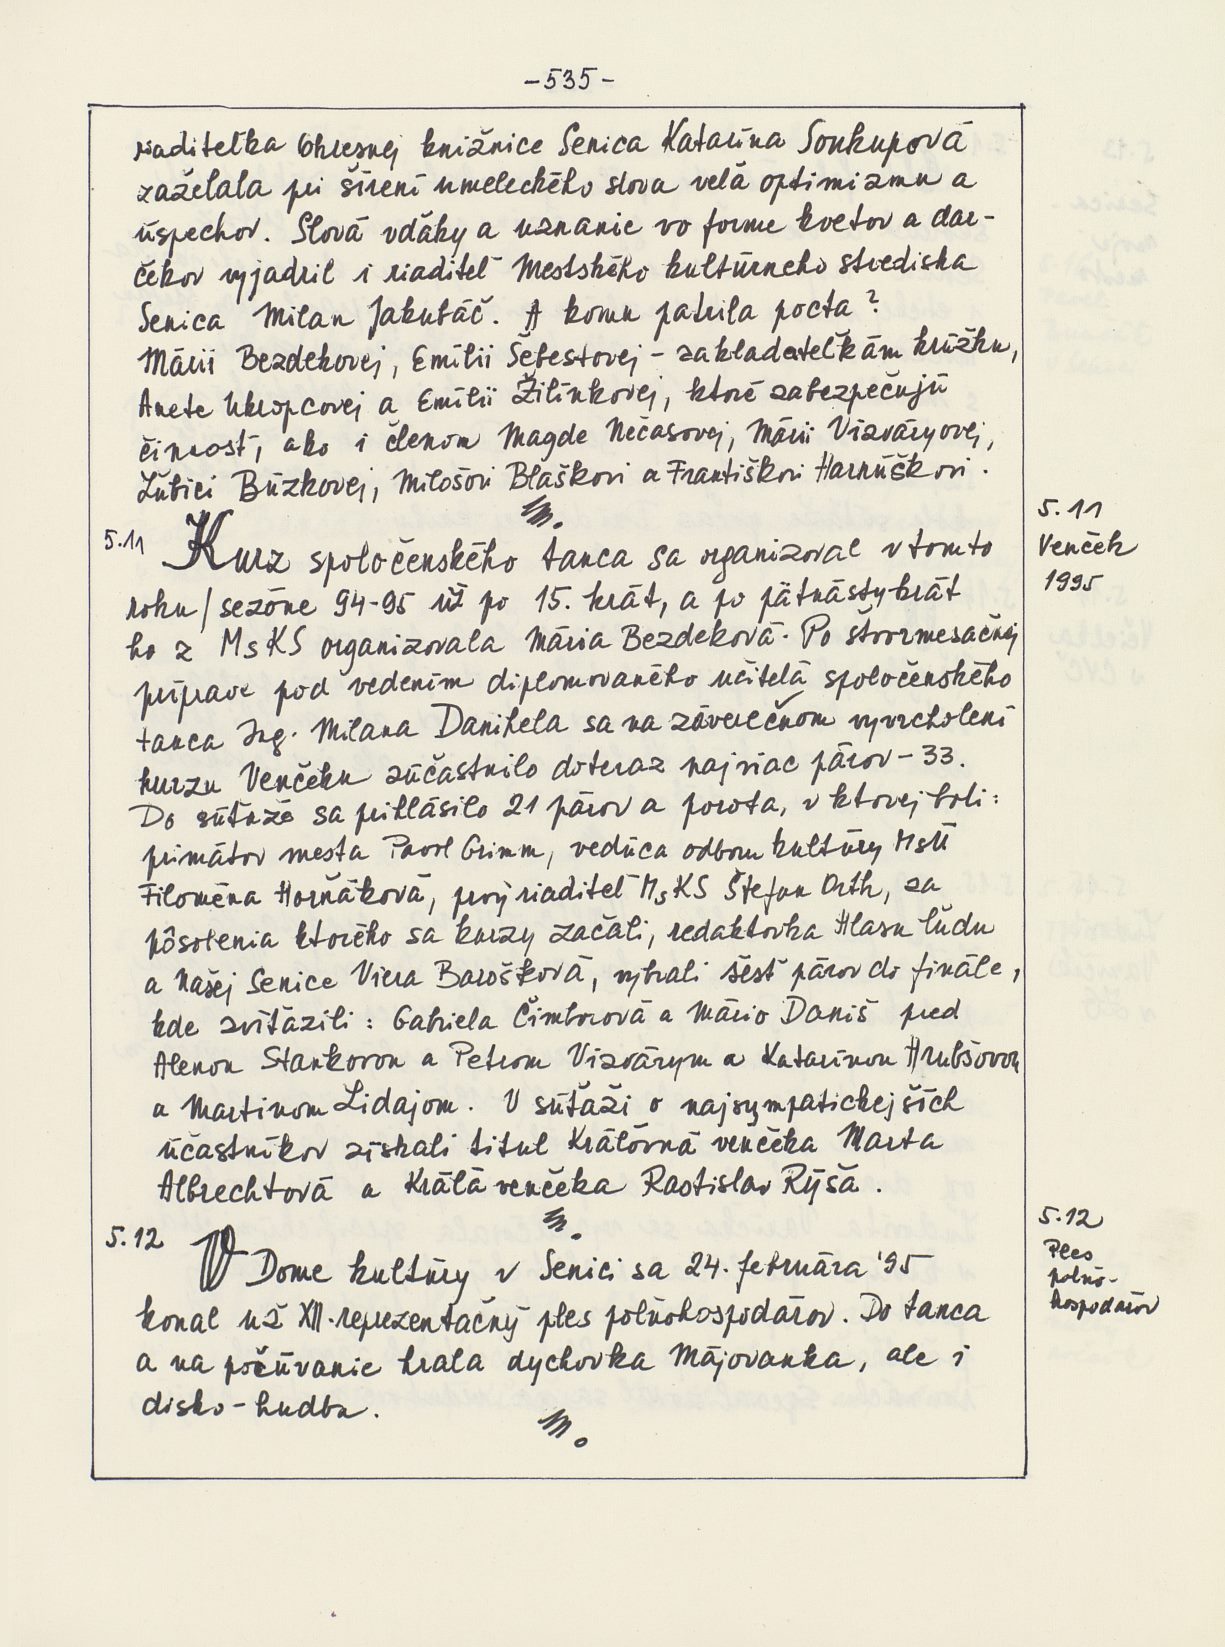 -535-
riaditeľka Okresnej knižnice Senica Katarína Soukupová
zaželala pri šírení umeleckého slova veľa optimizmu a
úspechov. Slová vďaky a uznanie vo forme kvetov a dar-
čekov vyjadril i riaditeľ Mestského kultúrneho strediska
Senica Milan Jakubáč. A komu patrila pocta?
Márii Bezdekovej, Emílii Šebestovej - zakladateľkám krúžku,
Anete Ukropcovej a Emílii Žilínkovej, ktoré zabezpečujú
činnosť, ako i členom Magde Nečasovej, Márii Vizváryovej,
Ľubici Búzkovej, Milošovi Blaškovi a Františkovi Harnúškovi.
5.11 Kurz spoločenského tanca sa organizoval v tomto
roku/sezóne 94-95 už po 15. krát, a po pätnástykrát
ho z MsKS organizovala Mária Bezdeková. Po štvormesačnej
príprave pod vedením diplomovaného učiteľa spoločenského
tanca Ing. Milana Danihela sa na záverečnom vyvrcholení
kurzu Venčeku zúčastnilo doteraz najviac párov - 33.
Do súťaže sa prihlásilo 21 párov a porota, v ktorej boli:
primátor mesta Pavol Grimm, vedúca odboru kultúry MsÚ
Filoména Horňáková, prvý riaditeľ MsKS Štefan Orth, za
pôsobenia ktorého sa kurzy začali, redaktorka Hlasu ľudu
a Našej Senice Viera Barošková, vybrali šesť párov do finále,
kde zvíťazili: Gabriela Čimborová a Mário Daniš pred
Alenou Stankovou a Petrom Vizvárym a Katarínou Hrubšovou
a Martinom Lidajom. V súťaži o najsympatickejších
účastníkov získali titul Kráľovná venčeka Marta
Albrechtová a Kráľa venčeka Rastislav Rýša.
5.12 V Dome kultúry v Senici sa 24. februára '95
konal už XII. reprezentačný ples poľnohospodárov. Do tanca
a na počúvanie hrala dychovka Májovanka, ale i
disko-hudba.
5.11
Venček
1995
5.12
Ples
poľno-
hospodárov